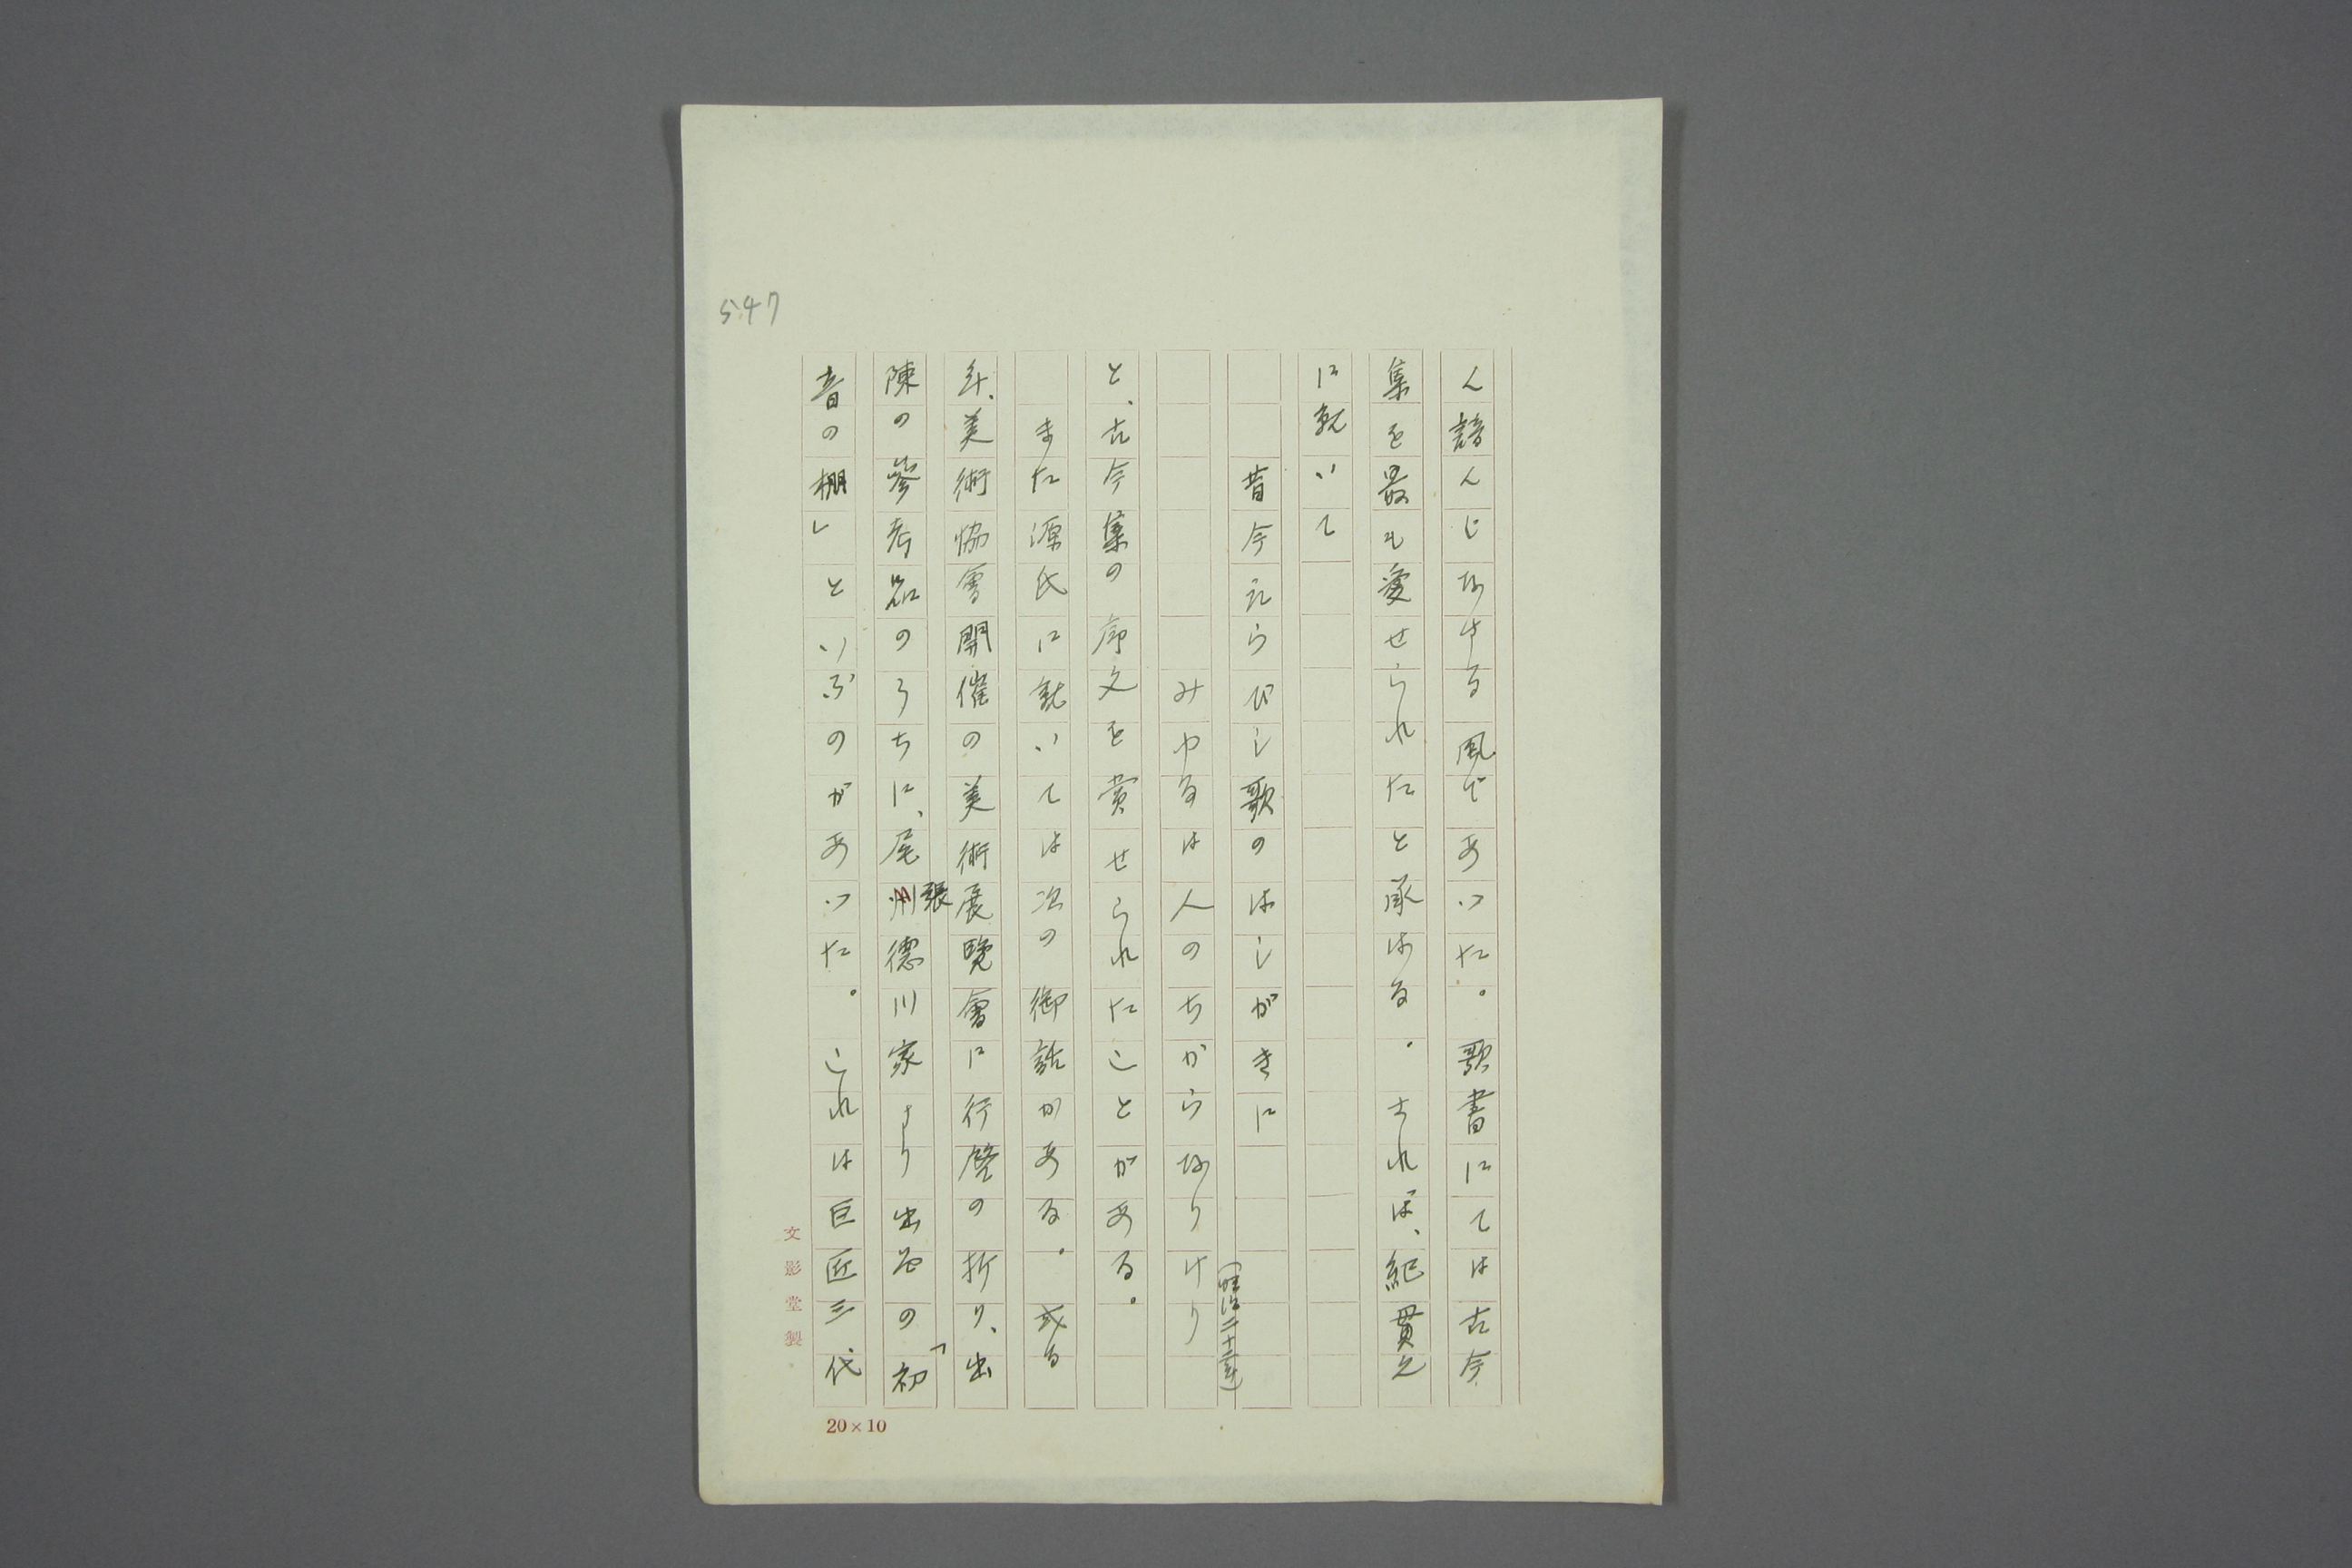 547
ん諳んじなさる風であつた。歌書にては古今
集を最も愛せられたと承はる。されば、紀貫之
に就いて
昔今えらびし歌のはしがきに
みゆるは人のちからなりけり
(明治二十二年)
と、古今集の序文を賞せられたことがある。
また源氏に就いては次の御話がある。或る
年、美術協會開催の美術展覽會に行啓の折り、出
陳の參考品のうちに、尾張德川家より出品の「初
音の棚」といふのがあつた。これは巨匠三代
文影堂製
20×10